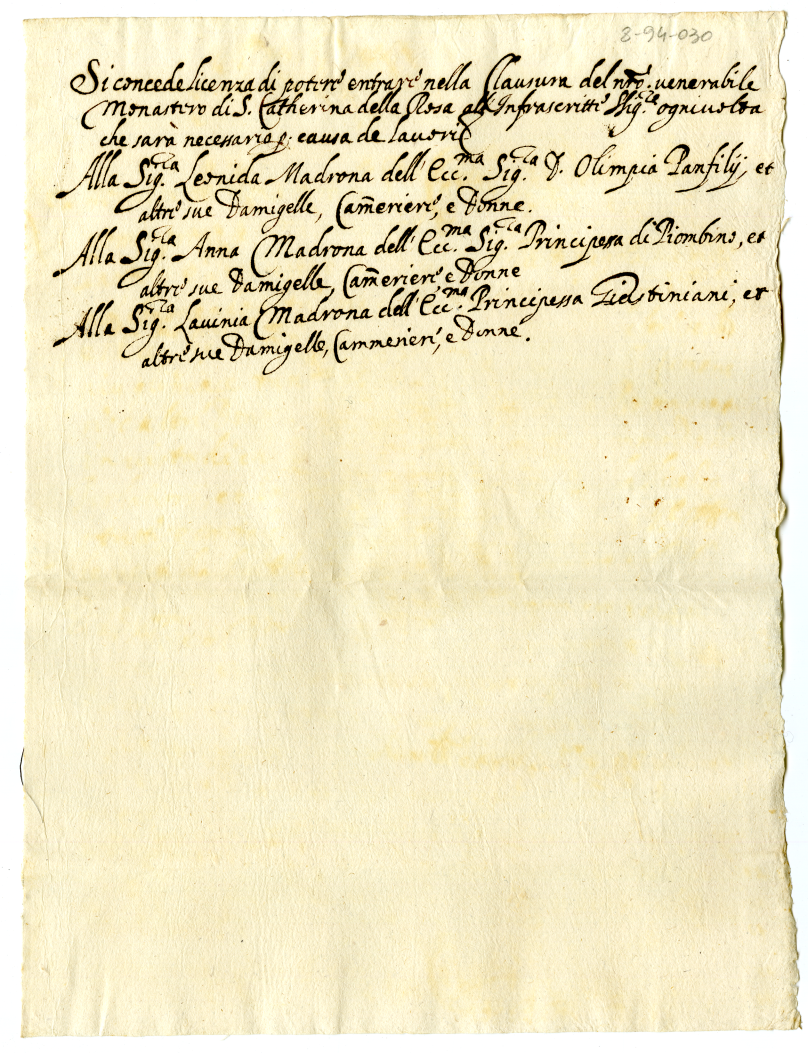 2-94-030
Si concede licenza di potere entrare nella Clausura del nro. venerabile
Monastero di S. Catherina della Rosa all'Infrascritte Sig.re ogni volta
che sarà necessario p. causa de lavori
Alla Sig.ra Leonida Madrona dell'Ecc.ma Sig.ra D. Olimpia Panfilij, et
altre sue Damigelle, Cam̃eriere, e Donne.
Alla Sig.ra Anna Madrona dell'Ecc.ma Sig.ra Principessa di Piombino, et
altre sue Damigelle, Cam̃eriere, e Donne
Alla Sig.ra Lavinia Madrona dell'Ecc.ma Principessa Giustiniani, et
altre sue Damigelle, Cammerieri, e Donne.